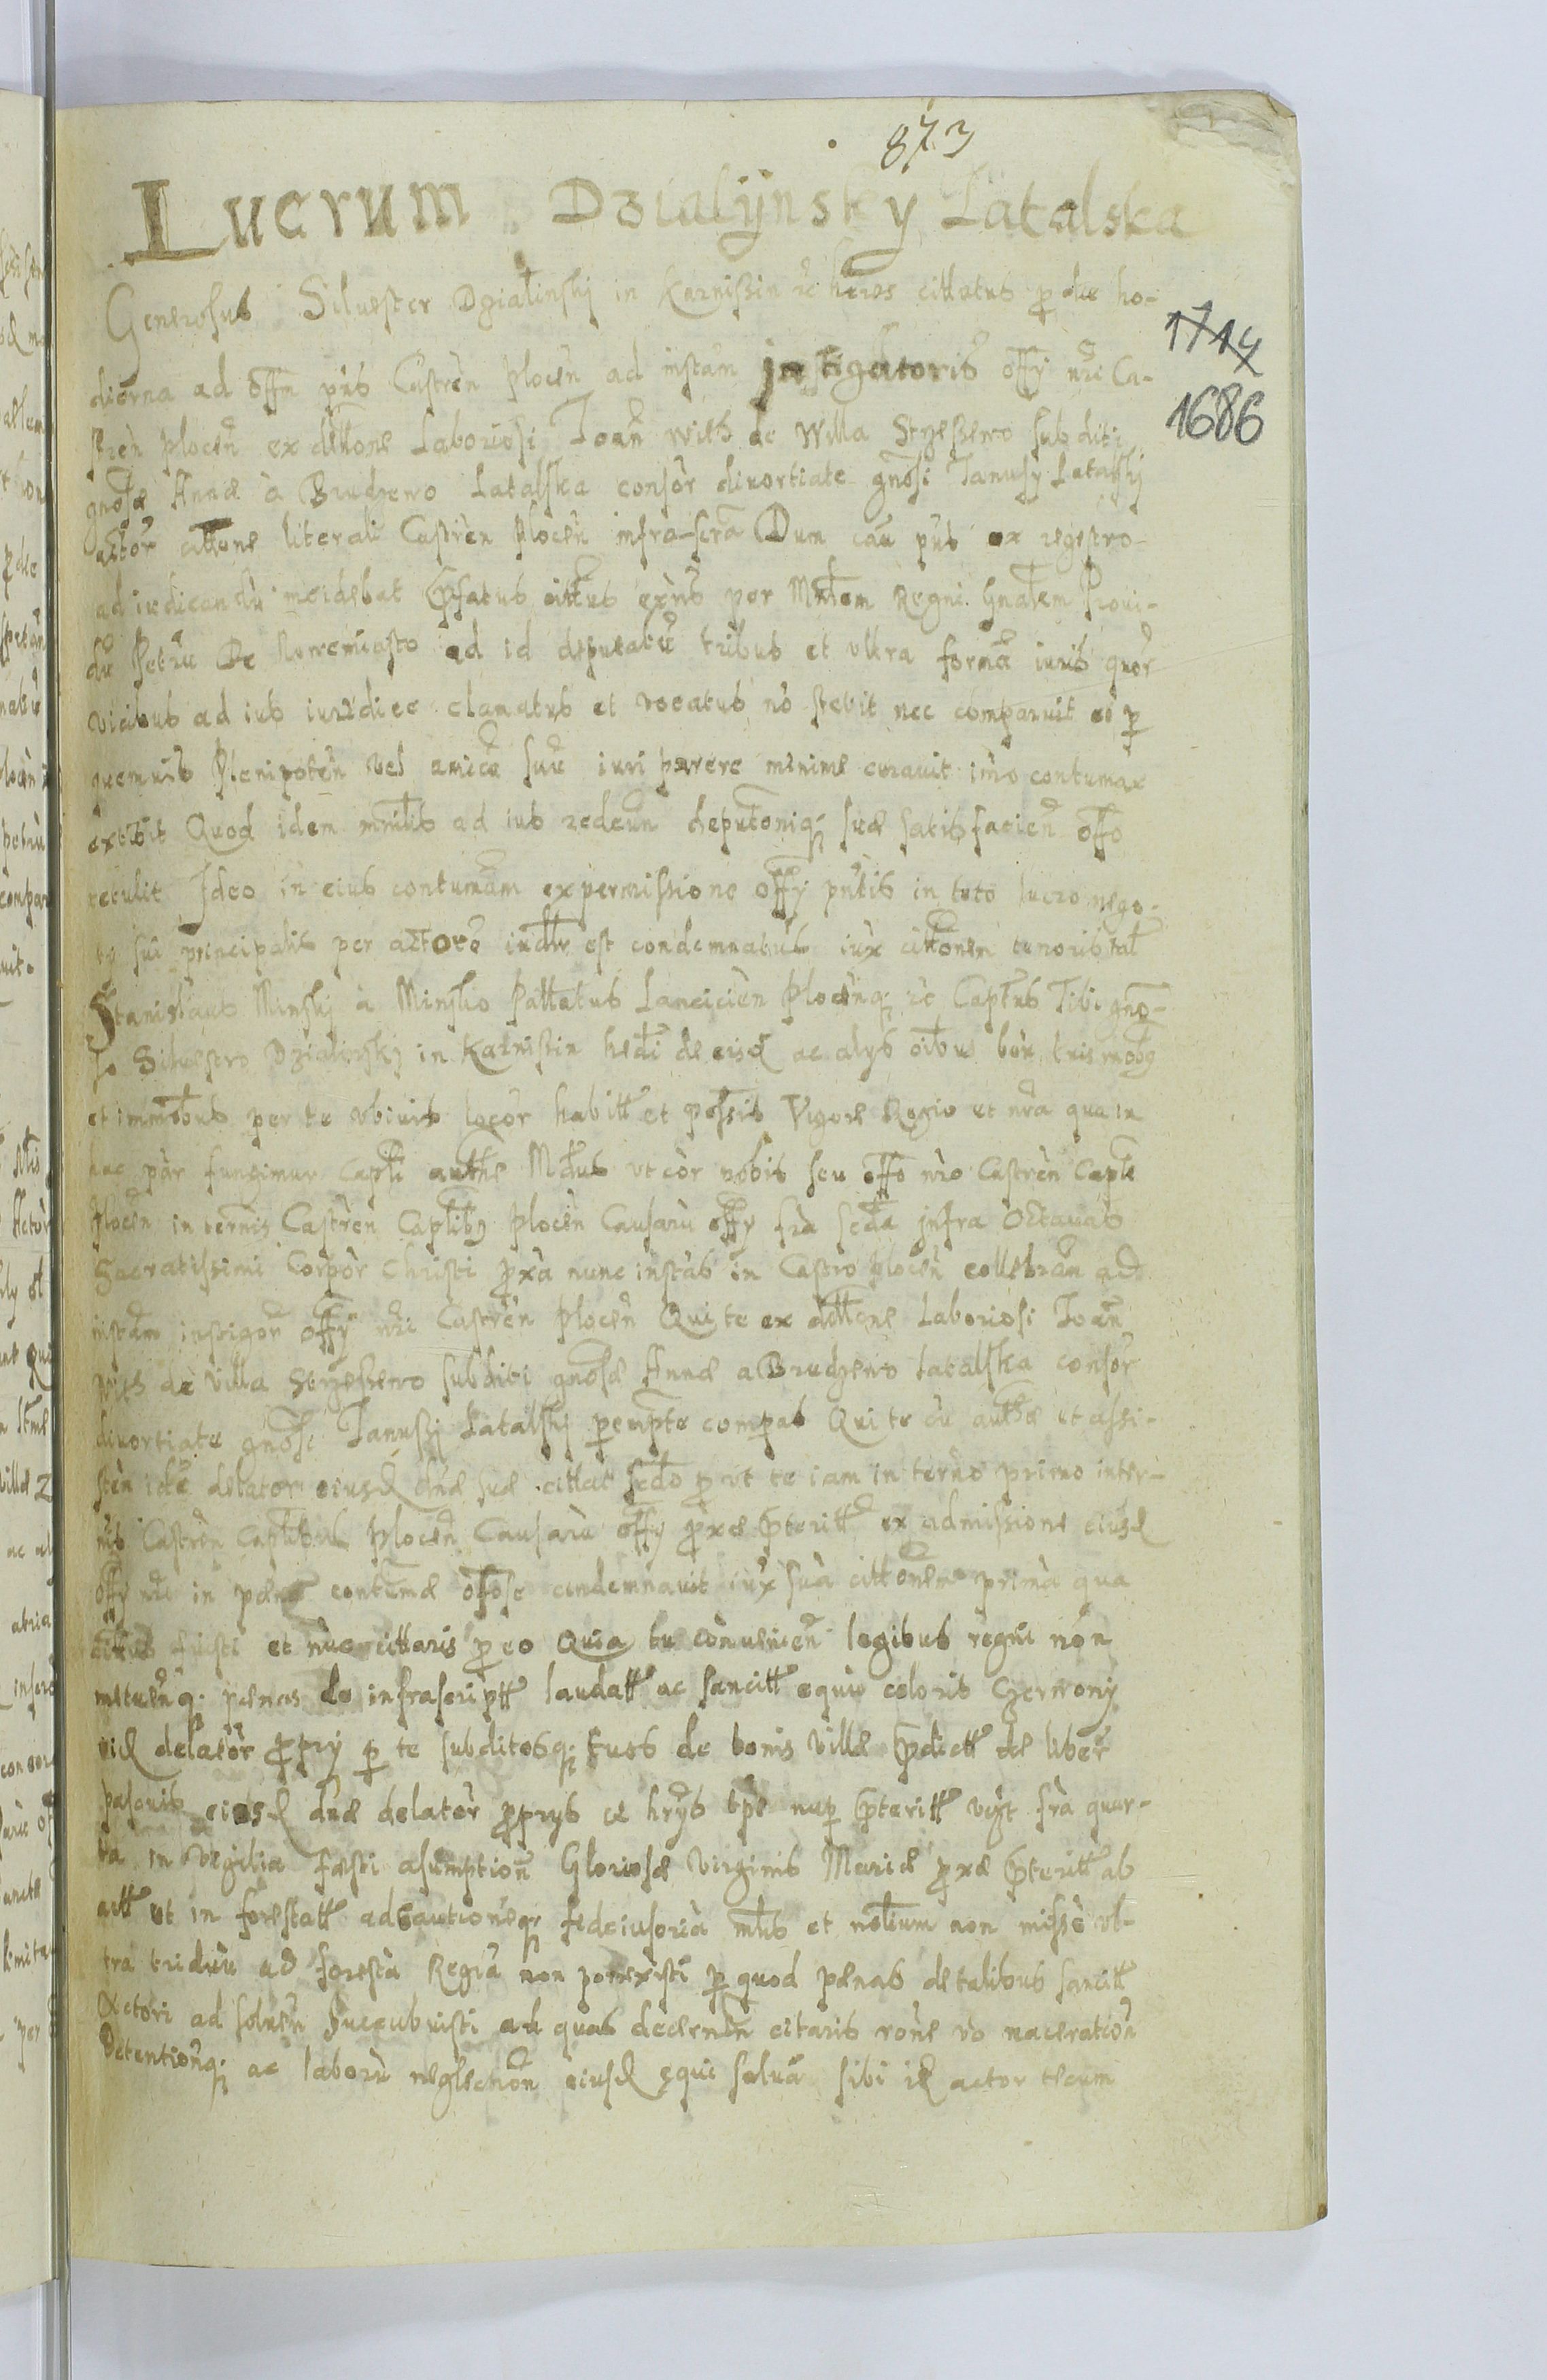 873
Lucrum Dzialijnsky Latalska
Generosus Siluester Dzialinskj in Karnissin etc hæres cittatus pro die ho-
dierna ad offm pñs Castren Plocen ad instam instigatoris offy nri Ca-
stren plocen ex dellone Laboriosi Joañ wies de Willa Strzeßewo subditi
gnosæ Annæ à Brudzewo Latalska consor diuortiate gnosi Janusy Latalskj
actor attone literali Castren plocen infra-scra Dum cau pñs ex regestro
ad iudicandu incidebat Præfatus cittus exñs per Mnlem Regni Gnalem Proui-
du Petru De Nowemiasto ad id deputatu tribus et vltra forma iuris quor
vicibus ad ius iuridice clamatus et vocatus no stetit nec comparuit et per
quemuis Plenipoten vel amicu suu iuri parere minime curauit imo contumax
extitit Quod idem mnlis ad ius redeun deputoniq; suæ satisfacien offo
retulit Ideo in eius contumam ex permissione offy pñtis in toto lucro nego-
ty sui principalis per actore indtr est condemnatus iux cittonem tenoris tal
Stanislaus Minskj à Minsko Pallatus Lancicien Plocenq; etc Captus Tibi gno-
so Siluestro Dzialinskj in Karnissin hedi de eisd ac alys oibus bon tuis mobq
et immobus per te vbiuis locor habitt et possis Vigore Regio et nra qua in
hac par fungimur Capli authe Mdus vt cor nobis seu offo nro Castren Capli
plocen in ternis Castren Caplibq plocen Causaru offy fria scda infra Octauas
Sacratissimi Corpor Christi proxa nunc instas in Castro plocen cellebran ad
instam instigor offy nri Castren plocen Qui te ex dellone Laboriosi Joañ
wies de Villa Strzeßewo subditi gnosæ Annæ a Brudzewo Latalska consor
diuortiate gnosi Janussij Latalskj perempte compas Qui te cu authæ et assi-
sten ide delator eiusd dnæ suæ cittat scdo pro vt te iam in terno primo inter-
nis Castren Caplibus plocen Causaru offy proxæ præteritt ex admissione eiusd
offy nri in pæna contumæ offose condemnauit iux sua cittonem prima qua
cittus fuisti et nuc cittaris pro eo Quia tu conuenien legibus regni non
metuenq. pænas de infrascriptt laudatt ac sancitt equu coloris Czerwony
eid delator propry per te subditosq; tuos de bonis villæ prædictt de liber
pascuis eiusd dnæ delator proprys et hrys tpe nup præteritt vigt fria quar-
ta in vigilia fæsti asumption Gloriosæ Virginis Mariæ proxæ præteritt ab
actt et in forestatt ad cautionesq; fideiusoria mtis et nobilium non misse vl-
tra triduu ad foresta Regia non porrexisti per quod pænas de talibus sancitt
Actori ad soluen succubuisti ad quas decernen citaris rone vo maceration
detentionq; ac laboru neglection eiusd equi salua sibi id actor tecum
1714
1686